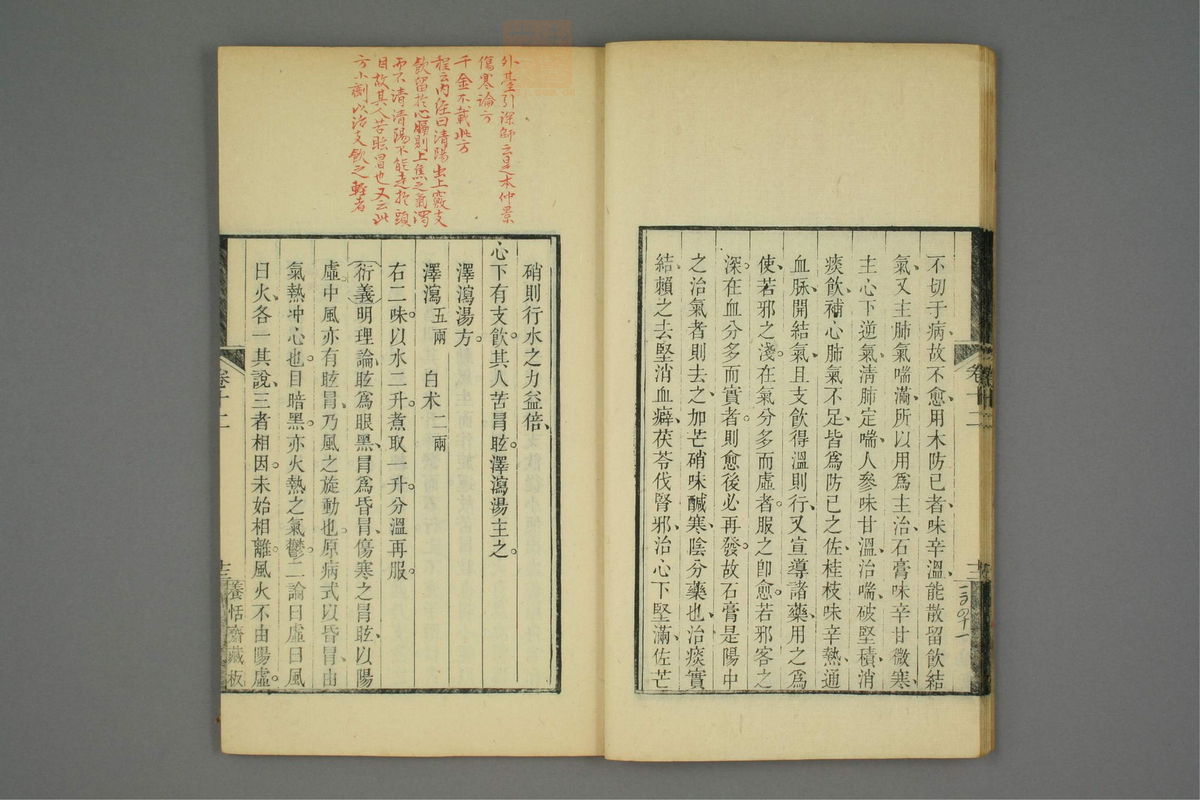 不切于病故不愈用木防已者味辛溫能散留飲結
氣又主肺氣喘滿所以用爲主治石膏味辛甘微寒
主心下逆氣清肺定喘人參味甘溫治喘破堅積消
痰飲補心肺氣不足皆爲防已之佐桂枝味辛熱通
血脉開結氣且支飲得溫則行又宣導諸藥用之爲
使若邪之淺在氣分多而虛者服之卽愈若邪客之
深在血分多而實者則愈後必再發故石膏是陽中
之治氣者則去之加芒硝味鹹寒陰分藥也治痰實
結賴之去堅消血癖茯苓伐腎邪治心下堅滿佐芒
卷十二
外臺引深師云是本仲景
傷寒論方
千金不載此方
程云內經曰清陽出上竅支
飲留於心膈則上焦之氣濁
而不清清陽不能走於頭
目故其人苦眩冒也又云此
方小劑以治支飲之輕者
硝則行水之力益倍
心下有支飲其人苦冒眩澤瀉湯主之
澤瀉湯方
澤瀉五兩 白朮二兩
右二味以水二升煮取一升分溫再服
衍義明理論眩爲眼黑冒爲昏冒傷寒之冒眩以陽
虛中風亦有眩冒乃風之旋動也原病式以昏冒由
氣熱冲心也目暗黑亦火熱之氣鬱二論曰虛曰風
曰火各一其說三者相因未始相離風火不由陽虛
卷十二
十三
養恬齋藏板